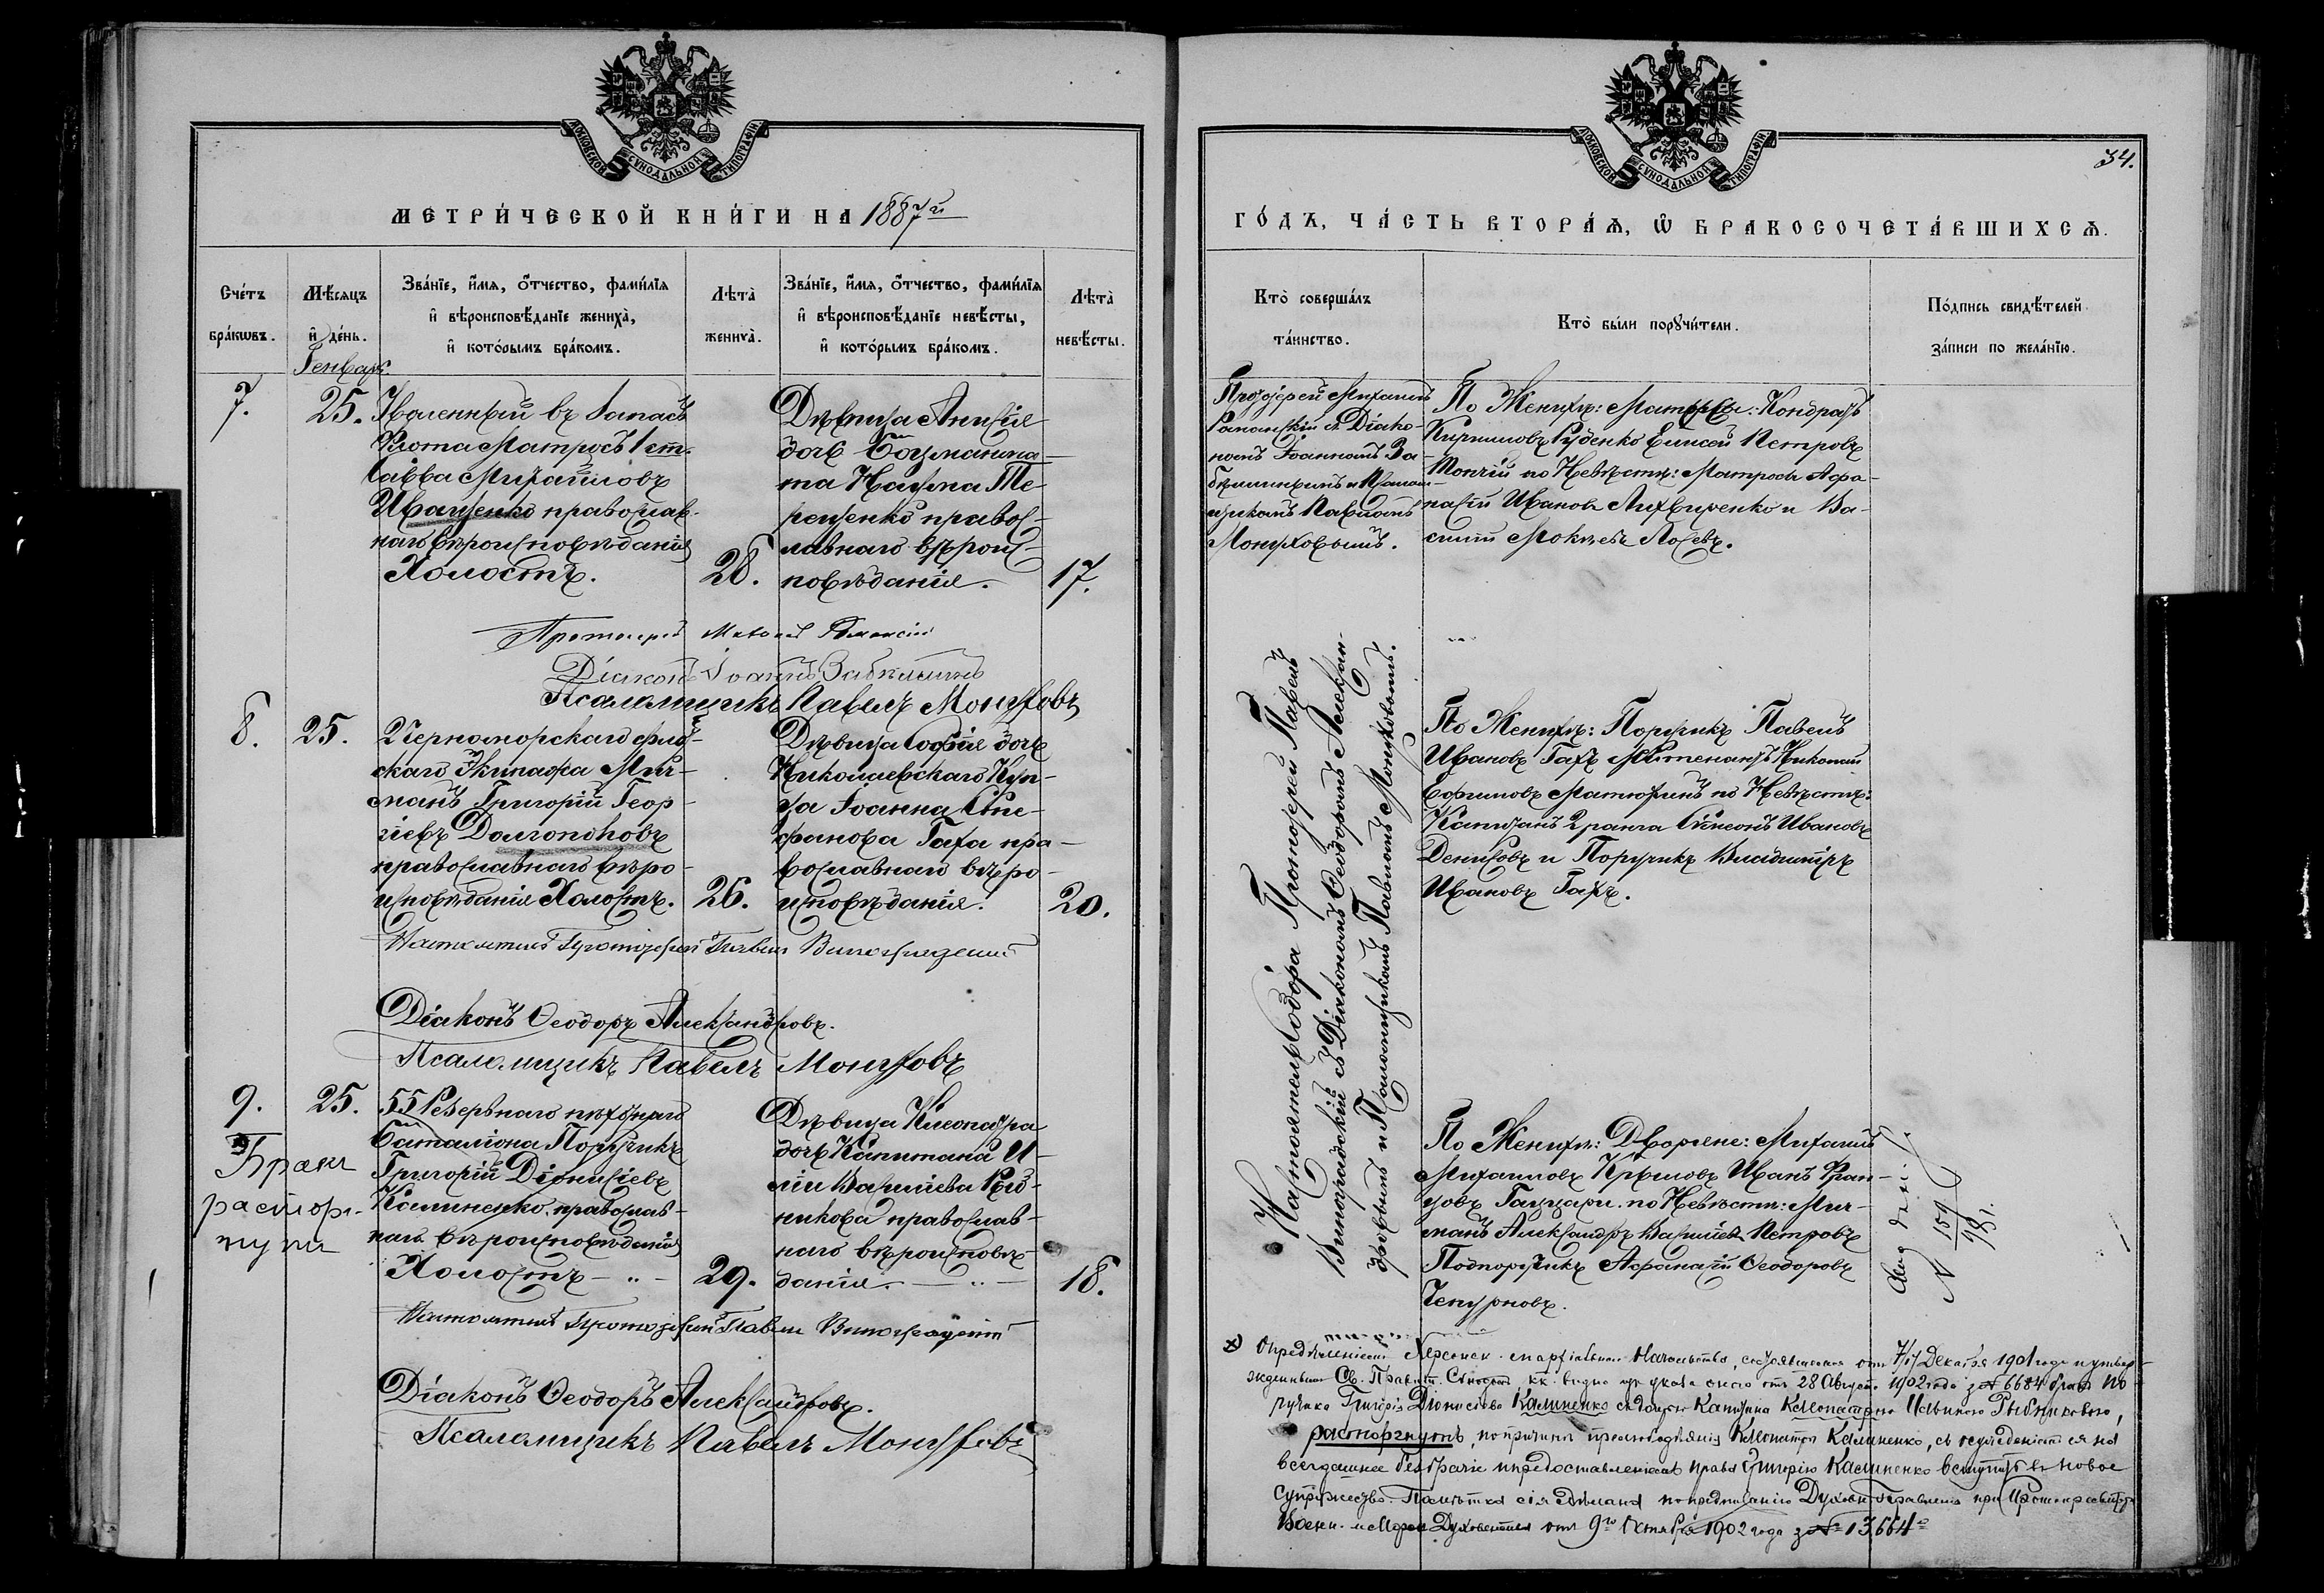 МОСКОВСКОЙ СѴНОДАЛЬНОЙ ТИПОГРАФІИ
МЕТРИ́ЧЕСКОЙ КНИ́ГИ НА 1887й
Счéтъ бра́кѡвъ.
Мѣ́сяцъ и҆ де́нь.
Зва́нїе, и҆́мя, ѻ҆́тчество, фами́лїя
и҆ вѣроисповѣ́данїе жениха̀,
и҆ кото́рымъ бра́комъ.
Лѣта̀ жениха̀.
Зва́нїе, и҆́мя, ѻ҆́тчество, фами́лїя
и҆ вѣроисповѣ́данїе невѣ́сты,
и҆ кото́рымъ бра́комъ.
Лѣта̀ невѣ́сты.
Генварь.
7.
25.
Уволенный въ Запасъ
Флота Матросъ 1 ст.
Савва Михайловъ
Иващенко православ-
наго вѣроисповѣданія
Холостъ.
28.
Дѣвица Анисія
дочь Боцманма-
та Наума Те-
рещенко правос-
лавнаго вѣроис-
повѣданія.
17.
Протоіерей Михаил
Діаконъ Іоаннъ Забѣлинъ
Псаломщикъ Павелъ Монцховъ
8.
25.
Черноморскаго флот-
скаго Экипажа Мич-
манъ Григорій Геор-
гіевъ Долгополовъ
православнаго вѣро-
исповѣданія Холостъ.
26.
Дѣвица Софія дочь
Николаевскаго Куп-
ца Іоанна Сте-
фанова Гаха пра-
вославнаго вѣро-
исповѣданія.
20.
Настоятель Протоіерей Павелъ Виноградскій
Діаконъ Ѳеодоръ Александровъ.
Псаломщикъ Павелъ Монцховъ
9.
25.
Бракъ
расторг-
нутъ
55 Резервнаго пѣхотнаго
баталіона Поручикъ
Григорій Діонисіевъ
Калиненко, православ-
наго вѣроисповѣданія
Холостъ - „ -
29.
Дѣвица Клеопатра
дочь Капитана И-
ліи Васильева Рыб-
никова православ-
наго вѣроисповѣ-
данія. - „ -
18.
Настоятель Протоіерей Павелъ Виноградскій
Діаконъ Ѳеодоръ Александровъ.
Псаломщикъ Павелъ Монцховъ
МОСКОВСКОЙ СѴНОДАЛЬНОЙ ТИПОГРАФІИ
34.
ГО́ДЪ, ЧА́СТЬ ВТОРА́Ѧ, Ѡ҆ БРАКОСОЧЕТА́ВШИХСѦ.
Кто̀ соверша́лъ
та́инство.
Кто̀ бы́ли порꙋчи́тели.
По́дпись свидѣ́телей
за́писи по жела́нїю.
Протоіерей Михаилъ
съ Діако-
номъ Іоанномъ За-
бѣлинымъ и Псалом-
щикомъ Павломъ
Монцховымъ.
По Женихѣ: Матросы: Кондратъ
Кирилловъ Руденко Елисей Петровъ
по Невѣстѣ: Матросы Афа-
насій Ивановъ Лихвиренко и Ва-
силій Мокіевъ Лосевъ.
Настоятель Собора Протоіерей Павелъ
Виноградскій съ Діакономъ Ѳеодоромъ Алексан-
дровымъ и Псаломщикомъ Павломъ Монцховымъ.
По Женихѣ: Поручикъ Павелъ
Ивановъ Гахъ Лейтенантъ Николай
Ефимовъ Матюхинъ по Невѣстѣ:
Капитанъ 2 ранга Симеонъ Ивановъ
Денисовъ и Поручикъ Владиміръ
Ивановъ Гахъ.
По Женихѣ: Дворяне: Михаилъ
Михаиловъ Крыловъ Иванъ Фран-
цовъ по Невѣстѣ: Мич-
манъ Александръ Васильевъ Петровъ
Подпоручикъ Афанасій Ѳеодоровъ
Чепурновъ.
№ 159
х) Опредѣленіемъ Херсонск. Епархіальнаго Начальства, состоявшимся от 7/17 Декабря 1901 года и утвер-
жденнымъ Св. Правит. Сѵнодомъ, какъ видно изъ указа онаго отъ 28 Августа 1902 года за № 6684 бракъ по-
ручика Григорія Діонисіева Калиненко съ дочерью Капитана Клеопатрою Ильиною Рыбниковою,
расторгнутъ, по причинѣ прелюбодѣянія Клеопатры Калиненко, съ осужденіемъ ея на
всегдашнее безбрачіе и предоставленіемъ права Григорію Калиненко вступить въ новое
супружество. Помѣтка сія сдѣлана по предписанію Духовн. Правленія при Протопресвитерѣ
Воен. и Морск. Духовенства отъ 9го Октября 1902 года за № 13,664.